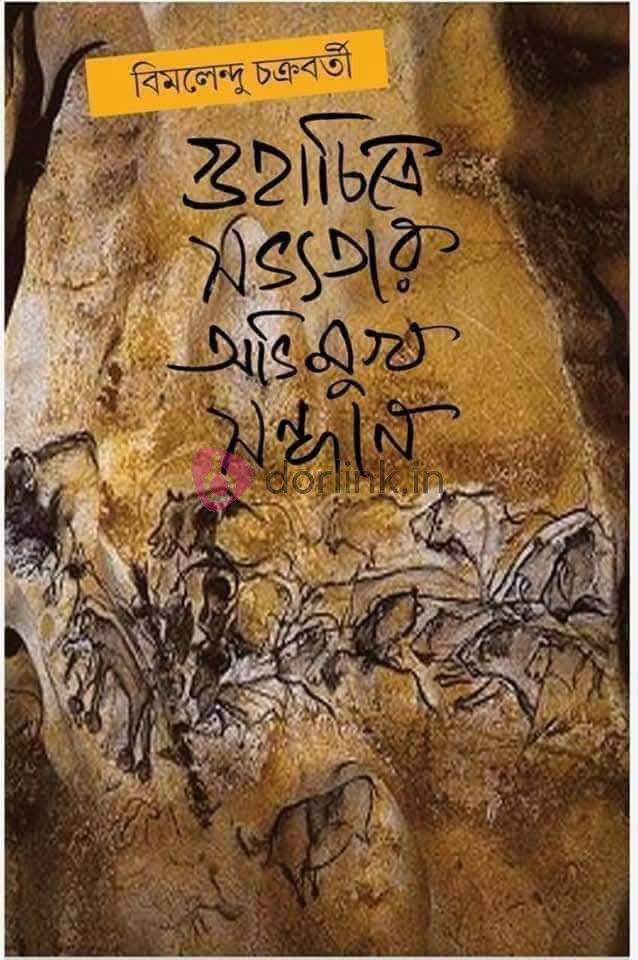 বিমলেন্দু চক্রবর্তী
গুহাচিত্রে
সভ্যতার
অভিমুখ
সন্ধান
dorlink.in